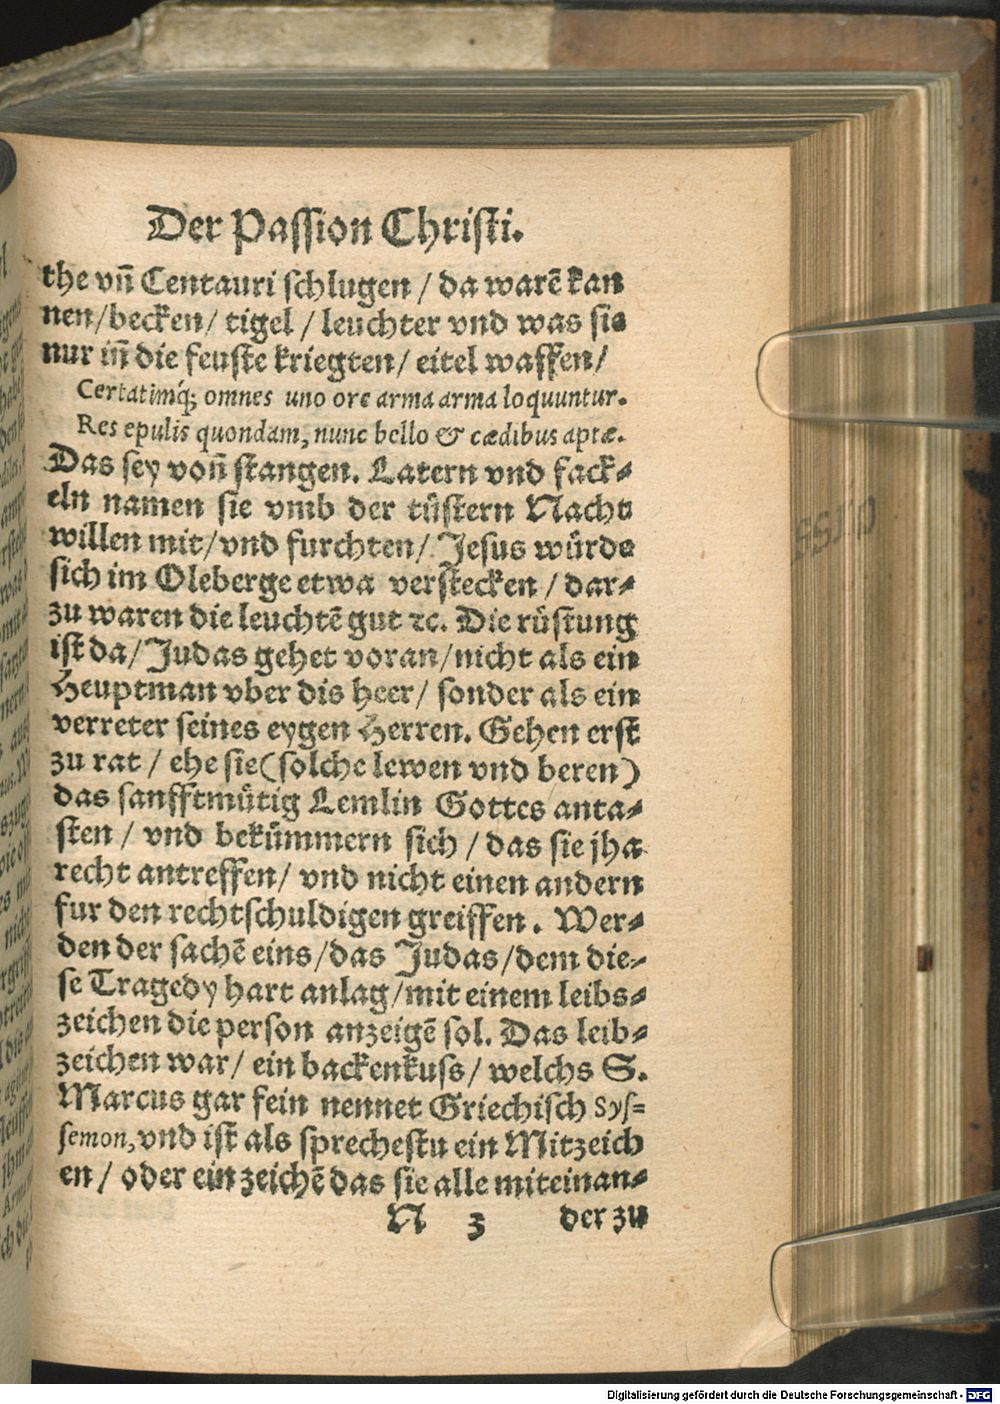 Der Passion Christi.
the vn̄ Centauri schlugen / da warē kan
nen/becken/ tigel / leuchter vnd was sie
nur in̄ die feuste kriegten/ eitel waffen/
Certatimq́; omnes uno ore arma arma loquuntur.
Res epulis quondam, nunc bello & cædibus aptæ.
Das sey von̄ stangen. Latern vnd fack⸗
eln namen sie vmb der tüstern Nacht
willen mit/vnd furchten/ Jesus würde
sich im Oleberge etwa verstecken / dar⸗
zu waren die leuchtē gut ꝛc. Die rüstung
ist da/ Judas gehet voran/nicht als ein
Heuptman vber dis heer/ sonder als ein
verreter seines eygen Herren. Gehen erst
zu rat / ehe sie(solche lewen vnd beren)
das sanfftmütig Lemlin Gottes anta⸗
sten / vnd bekümmern sich / das sie jha
recht antreffen/ vnd nicht einen andern
fur den rechtschuldigen greiffen. Wer⸗
den der sachē eins/das Judas/dem die⸗
se Tragedy hart anlag/mit einem leibs⸗
zeichen die person anzeigē sol. Das leib⸗
zeichen war/ ein backenkuss/ welchs S.
Marcus gar fein nennet Griechisch Sys=
semon,vnd ist als sprechestu ein Mitzeich
en / oder ein zeichē das sie alle miteinan⸗
N 3 der zu
Digitalisierung gefördert durch die Deutsche Forschungsgemeinschaft - DFG